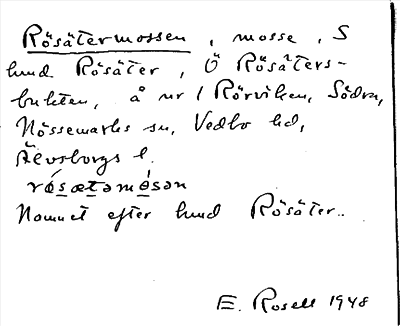 Rösätermossen, mosse, S
hmd Rösäter, Ö Rösäters-
bukten, å nr 1 Rörviken, Södra,
Nössemarks sn, Vedbo hd,
Älvsborgs l.
rǿsætəmósən
Namnet efter hmd Rösäter.
E. Rosell 1948